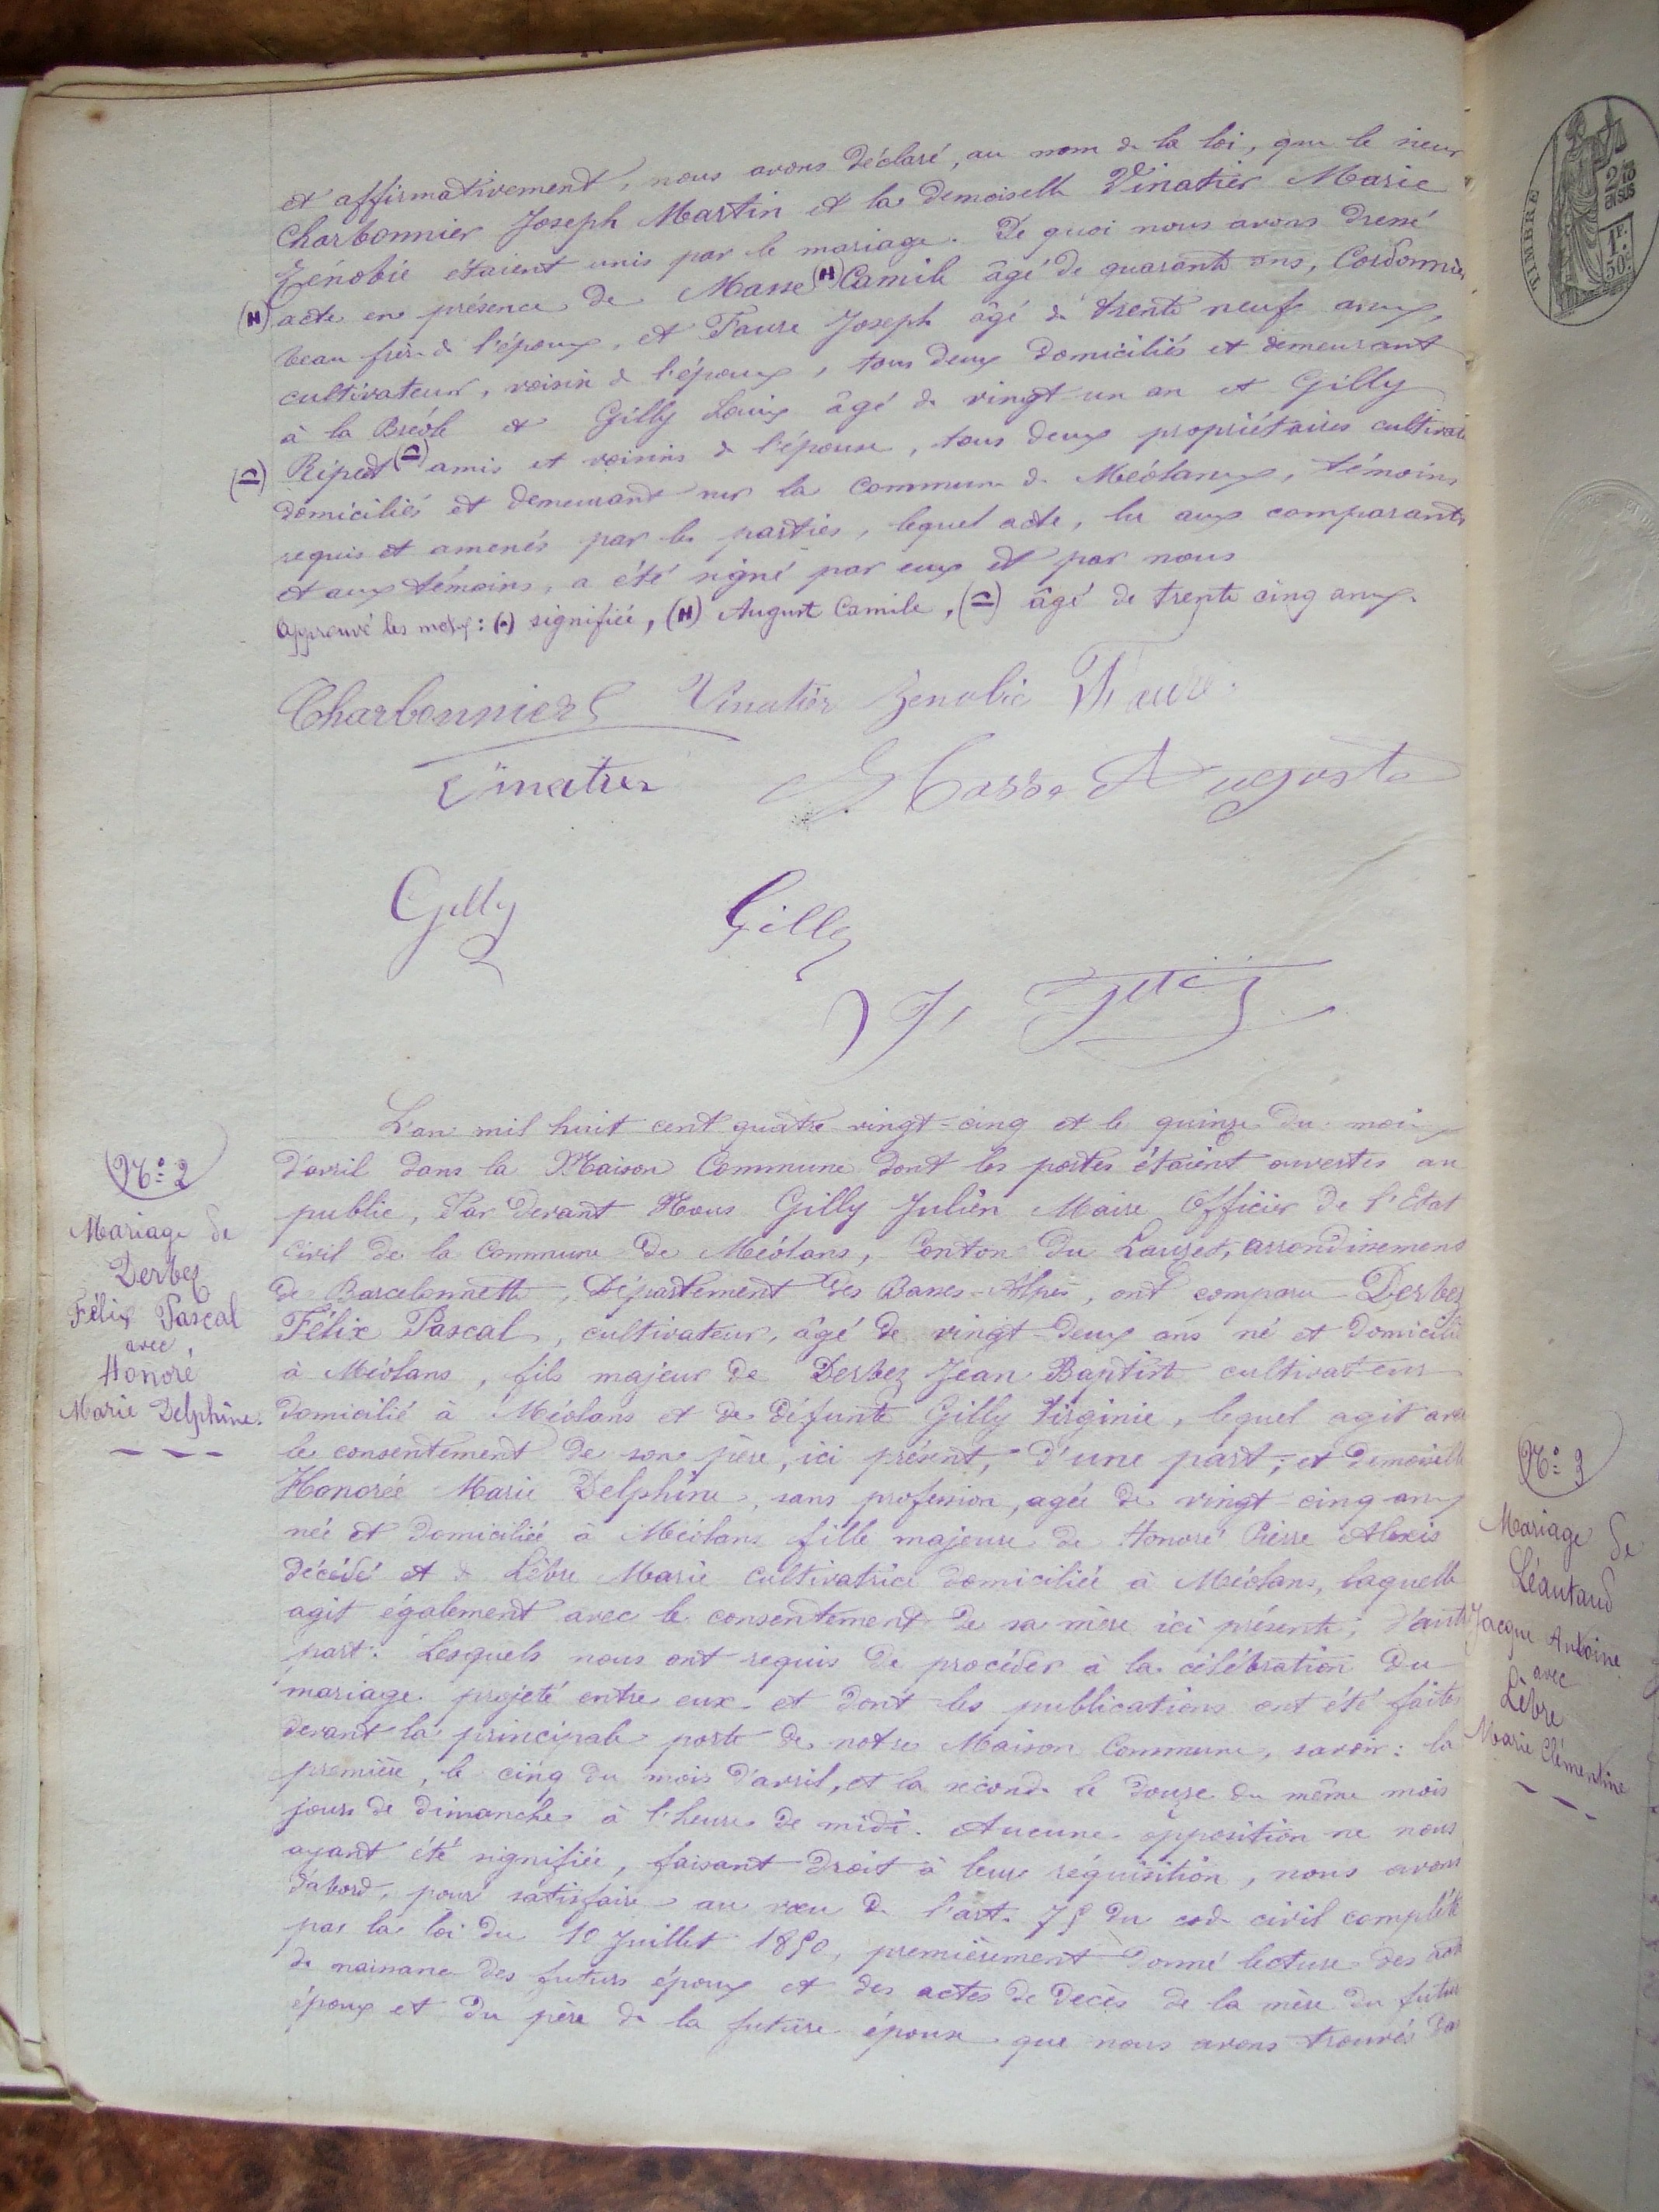 et affirmativement, nous avons déclaré, au nom de la loi, que le sieur
Charbonnier Joseph Martin et la demoiselle Vinatier Marie
Zénobie étaient unis par le mariage. De quoi nous avons dressé
(H) acte en présence de Masse (H) Camile âgé de quarante ans, Cordonnier
beau frère de l'époux, et Faure Joseph âgé de trente neuf ans,
cultivateur, voisin de l'époux, tous deux domiciliés et demeurant
à la Bréole et Gilly Louis âgé de vingt un an et Gilly
(D) Ripert (D) amis et voisins de l'épouse, tous deux propriétaires
domiciliés et demeurant sur la Commune de Méolans, témoins
requis et amenés par les parties, lequel acte, lu aux comparants
et aux témoins, a été signé par eux et par nous
approuvé les mots: (-) signifiée, (H) Auguste Camile, (D) âgé de trente cinq ans.
Charbonnier Vinatier Zenobie Faure
Vinatier Masse Auguste
Gilly Gilly
J. Gilly
N° 2
Mariage de
Derbez
Félix Pascal
avec
Honoré
Marie Delphine.
L'an mil huit cent quatre-vingt-cinq et le quinze du mois
d'avril dans la Maison Commune dont les portes étaient ouvertes au
public, Par devant Nous Gilly Julien Maire Officier de l'Etat
Civil de la Commune de Méolans, Canton du Lauzet, arrondissement
de Barcelonnette, Département des Basses-Alpes, ont comparu Derbez
Félix Pascal, cultivateur, âgé de vingt-deux ans né et domicilié
à Méolans, fils majeur de Derbez Jean Baptiste cultivateur
domicilié à Méolans et de défunte Gilly Virginie, lequel agit avec
le consentement de son père, ici présent, d'une part; et demoiselle
Honorée Marie Delphine, sans profession, agée de vingt-cinq ans
née et domiciliée à Méolans fille majeure de Honoré Pierre Alexis
décédé et de Lèbre Marie cultivatrice domiciliée à Méolans, laquelle
agit également avec le consentement de sa mère ici présente; d'autre
part: Lesquels nous ont requis de procéder à la célébration du
mariage projeté entre eux et dont les publications ont été faites
devant la principale porte de notre Maison Commune, savoir: la
première, le cinq du mois d'avril, et la seconde le douze du même mois
jours de dimanche à l'heure de midi. Aucune opposition ne nous
ayant été signifiée, faisant droit à leur réquisition, nous avons
d'abord, pour satisfaire au vœu de l'art. 75 du code civil complété
par la loi du 10 Juillet 1850, premièrement donné lecture des actes
de naissance des futurs époux et des actes de décès de la mère du futur
époux et du père de la future épouse que nous avons trouvés
TIMBRE
2/10
EN SUS
1F.
50C
N° 3
Mariage de
Léautaud
Jacque Antoine
avec
Lèbre
Marie Clémentine